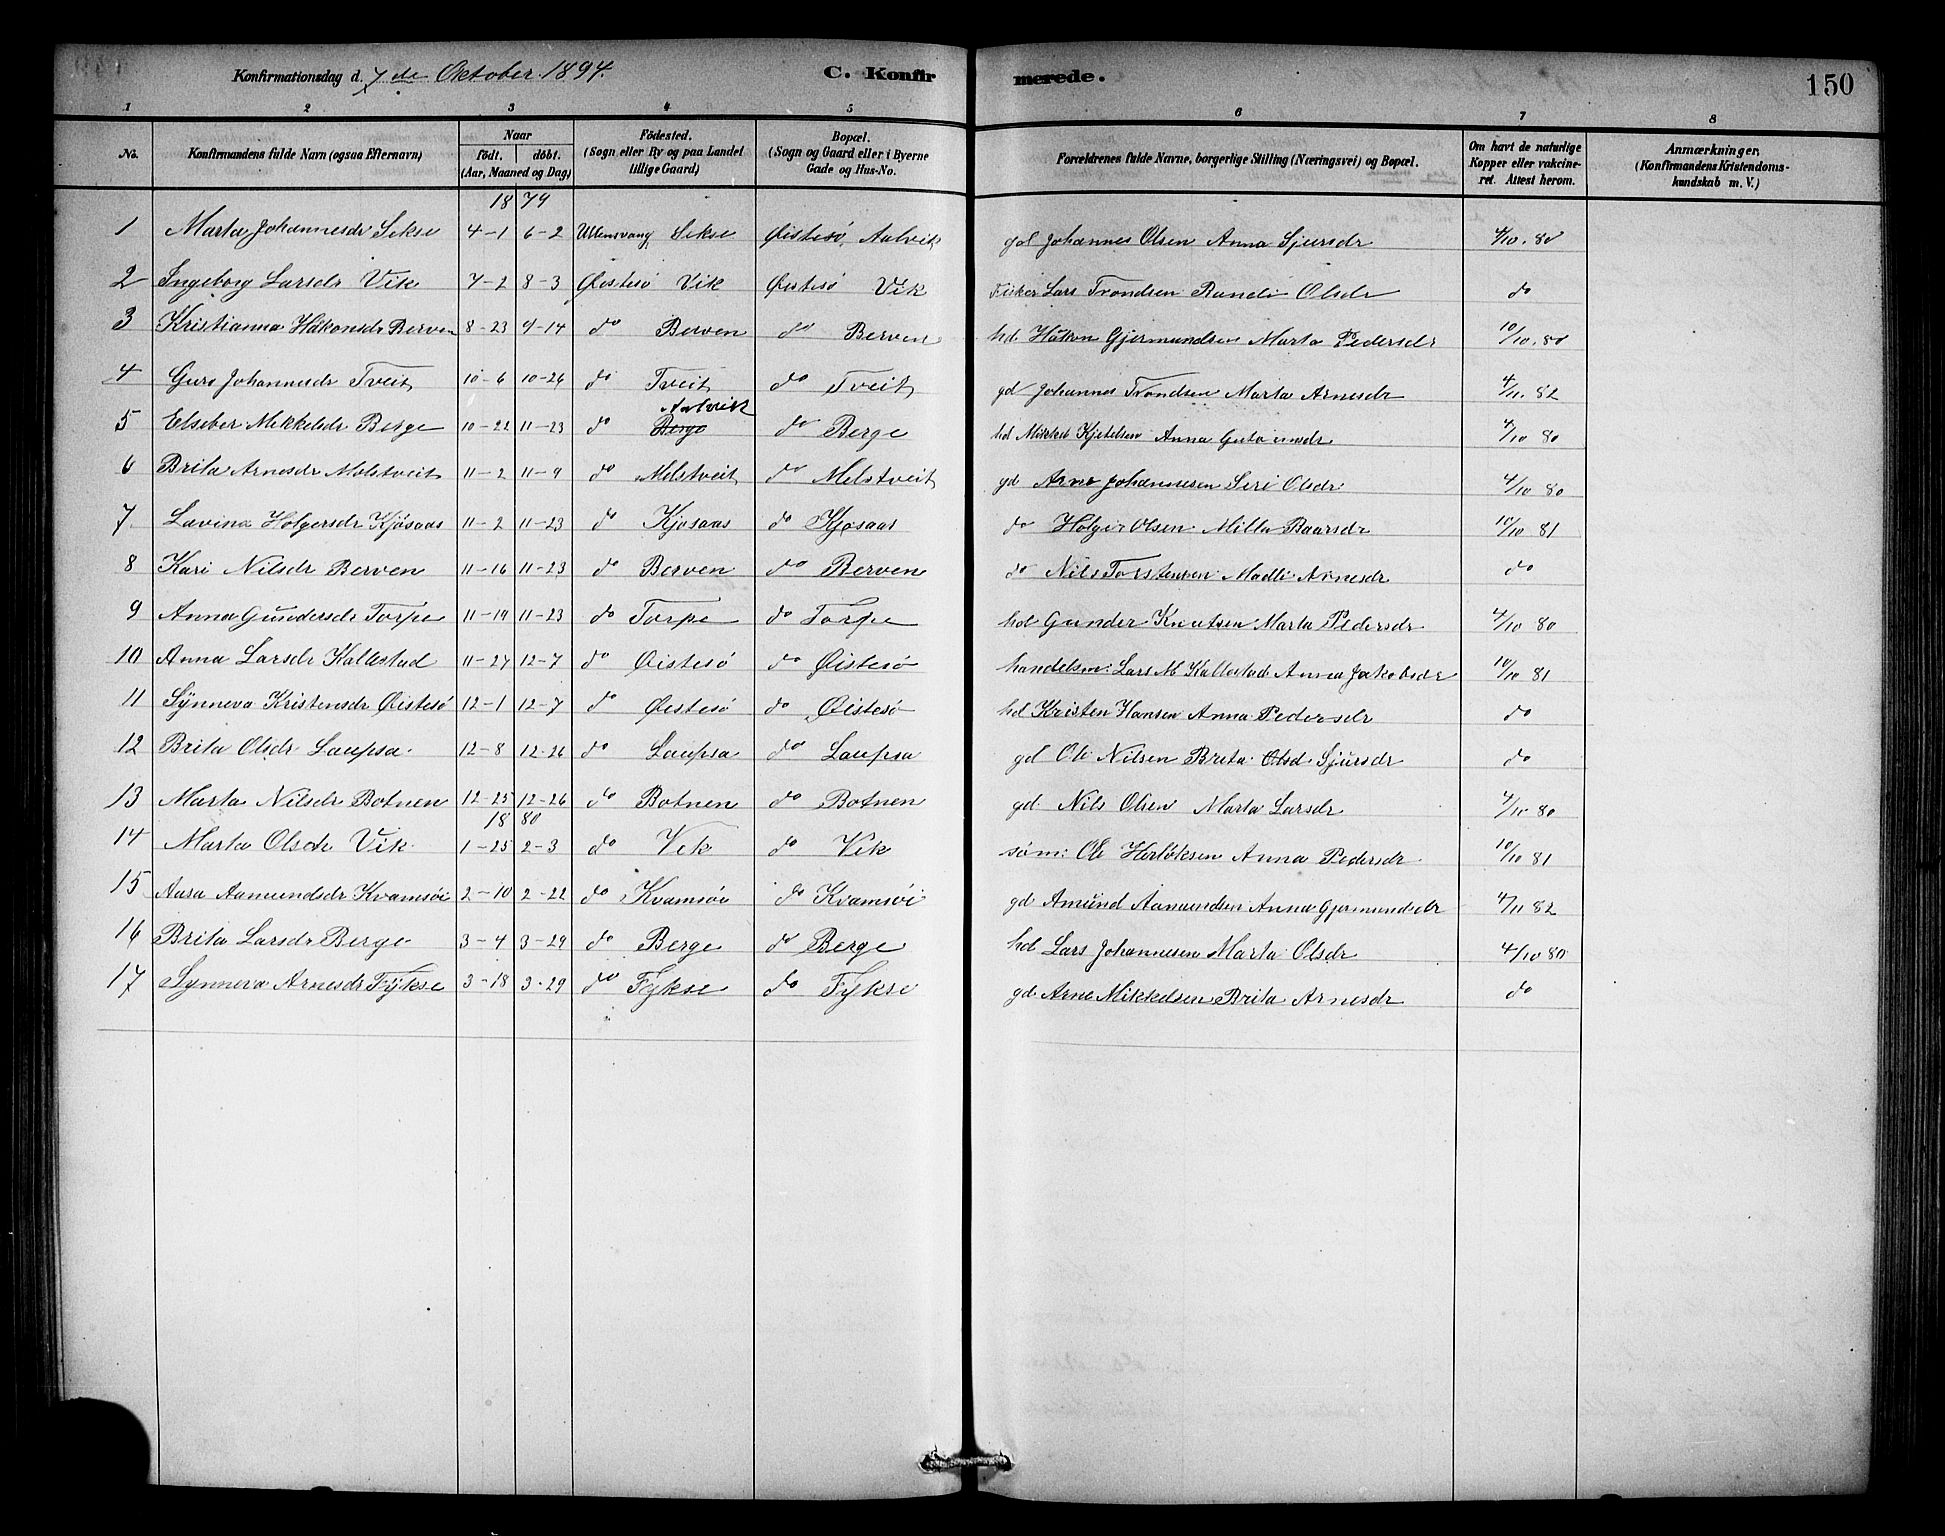 Konfirmationsdag d. 7de Oktober 1894. C. Konfirmerede. 150
1 2 3 4 5 6 7 8
No. Konfirmandens fulde Navn (ogsaa Efternavn) Naar födt. döbt. (Aar, Maaned og Dag) Födested. (Sogn eller By og paa Landet tillige Gaard) Bopæl. (Sogn og Gaard eller i Byerne Gade og Hus-No. Forældrenes fulde Navne, borgerlige Stilling (Næringsvei) og Bopæl. Om havt de naturlige Kopper eller vakcineret. Attest herom. Anmærkninger, (Konfirmandens Kristendomskundskab m. V.)
1879
1 Marta Johannesdr Sekse 4-1 6-2 Ullensvang Sekse Östesö, Aalvik gd Johannes Olsen Anna Sjursdr 4/10. 80
2 Ingeborg Larsdr Vik 7-2 8-3 Öistesö Vik Öistesö Vik Fisker Lars Trondsen Randi Olsdr do
3 Kristianna Håkonsdr Berven 8-23 9-14 do Berven do Berven hd. Håkon Gjermundsen Marta Pedersdr 10/10. 80
4 Guro Johannesdr Tveit 10-6 10-26 do Tveit do Tveit gd Johannes Trondsen Marta Arnesdr 4/11. 82
5 Elseber Mikkelsdr Berge 10-22 11-23 do Berge Aalvik do Berge hd Mikkel Kjetelsen Anna 4/10 80
6 Brita Arnesdr Melstveit 11-2 11-9 do Melstveit do Melstveit gd Arne Johannesen Seri Olsdr 4/10 80
7. Lavina Holgersdr Kjösaas 11-2 11-23 do Kjosaas do Kjosaas do Holger Olsen Milla Baarsdr 10/10 81
8 Kari Nilsdr Berven 11-16 11-23 do Berven do Berven do Nils Torstensen Madli Arnesdr do
9 Anna Gundersdr Torpe 11-19 11-23 do Torpe do Torpe hd Gunder Knutsen Marta Pedersdr 4/10 80
10 Anna Larsdr Kallestad 11-27 12-7 do Öistesö do Öistesö handelsm: Lars M Kallestad Anna Jakobsdr 10/10 81
11 Synneva Kristensdr Öistesö 12-1 12-7 do Öistesö do Öistesö hd Kristen Hansen Anna Pedersdr do
12 Brita Olsdr Laupsa 12-8 12-26 do Laupsa do Laupsa gd Ole Nilsen Brita Olsd Sjursdr do
13 Marta Nilsdr Botnen 12-25 12-26 do Botnen do Botnen gd. Nils Olsen Marta Larsdr 4/10 80
1880
14 Marta Olsdr Vik 1-25 2-3 do Vik do Vik söm: Ole Herlöksen Anna Pedersdr 10/10 81
15 Aasa Aamundsdr Kvamsöi 2-10 2-22 do Kvamsöi do Kvamsöi gd Amund Aamundsen Anna Gjermundsdr 4/11 82
16 Brita Larsdr Berge 3-4 3-29 do Berge do Berge hd Lars Johannesen Marta Olsdr 4/10 80
17 Synneva Arnesdr Fykse 3-18 3-29 do Fykse do Fykse gd. Arne Mikkelsen Brita Arnesdr do